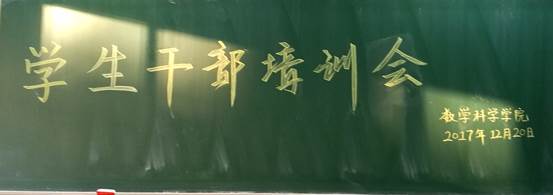 学生干部培训会
数学科学学院
2017年12月20日